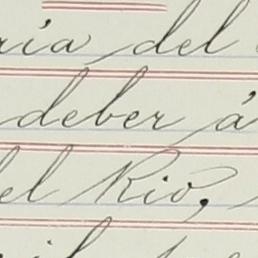 ria del
deber á
del Rio,